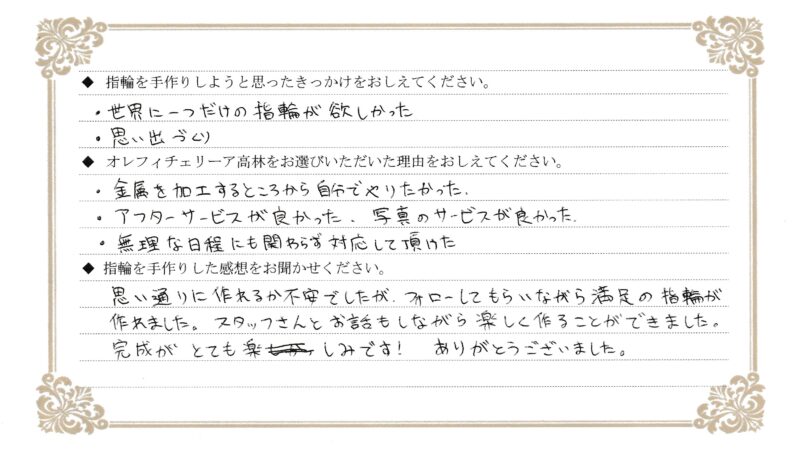 ◆ 指輪を手作りしようと思ったきっかけをおしえてください。
・世界に一つだけの指輪が欲しかった
・思い出づくり
◆ オレフィチェリーア高林をお選びいただいた理由をおしえてください。
・金属を加工するところから自分でやりたかった.
・アフターサービスが良かった、写真のサービスが良かった.
・無理な日程にも関わらず対応して頂けた
◆ 指輪を手作りした感想をお聞かせください。
思い通りに作れるか不安でしたが、フォローしてもらいながら満足の指輪が
作れました。スタッフさんとお話もしながら楽しく作ることができました。
完成がとても楽しみです! ありがとうございました。